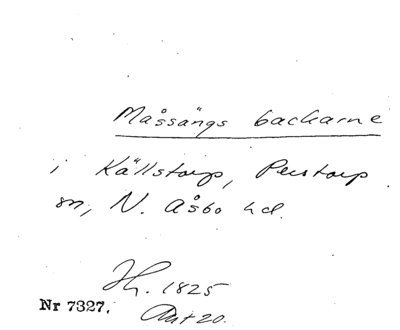 Måssängs backarne
i Källstorp, Perstorp
sn, N. Åsbo hd.
Hh. 1825
Nr 7327. Akt 20.